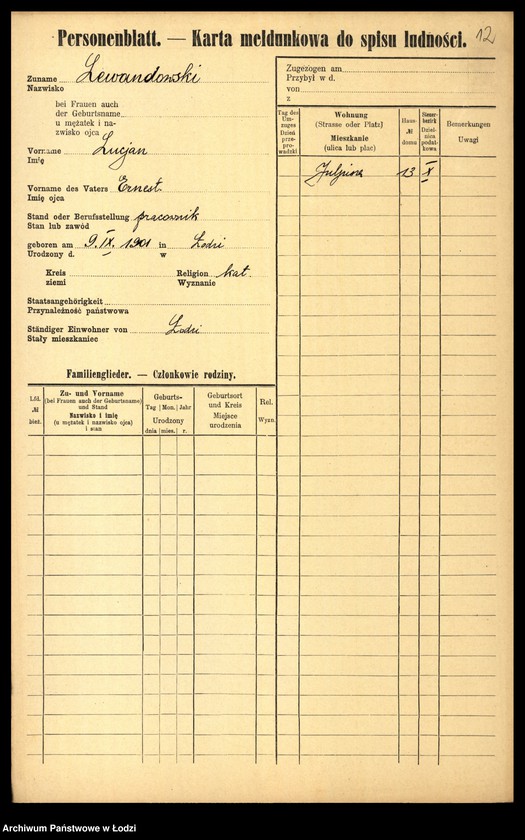 Personenblatt. — Karta meldunkowa do spisu ludności.
12
Zuname Lewandowski
Nazwisko
bei Frauen auch
der Geburtsname
u mężatek i na-
zwisko ojca
Vorname Lucjan
Imię
Vorname des Vaters Ernest
Imię ojca
Stand oder Berufsstellung pracownik
Stan lub zawód
geboren am 9. IX. 1901 in Łodzi
Urodzony d. w
Kreis
ziemi
Religion kat.
Wyznanie
Staatsangehörigkeit
Przynależność państwowa
Ständiger Einwohner von Łodzi
Stały mieszkaniec
Zugezogen am
Przybył w d.
von
z
Tag des Um-zuges
Dzień prze-pro-wadzki
Wohnung
(Strasse oder Platz)
Mieszkanie
(ulica lub plac)
Haus-
№
domu
Steuer-
bezirk
Dziel-
nica
podat-
kowa
Bemerkungen
Uwagi
13 X
Familienglieder. — Członkowie rodziny.
Lfd.
№
bież.
Zu- und Vorname
(bei Frauen auch der Geburtsname)
und Stand
Nazwisko i imię
(u mężatek i nazwisko ojca)
i stan
Geburts-
Tag Mon. Jahr
Urodzony
dnia mies. r.
Geburtsort
und Kreis
Miejsce
urodzenia
Rel.
Wyzn.
Archiwum Państwowe w Łodzi